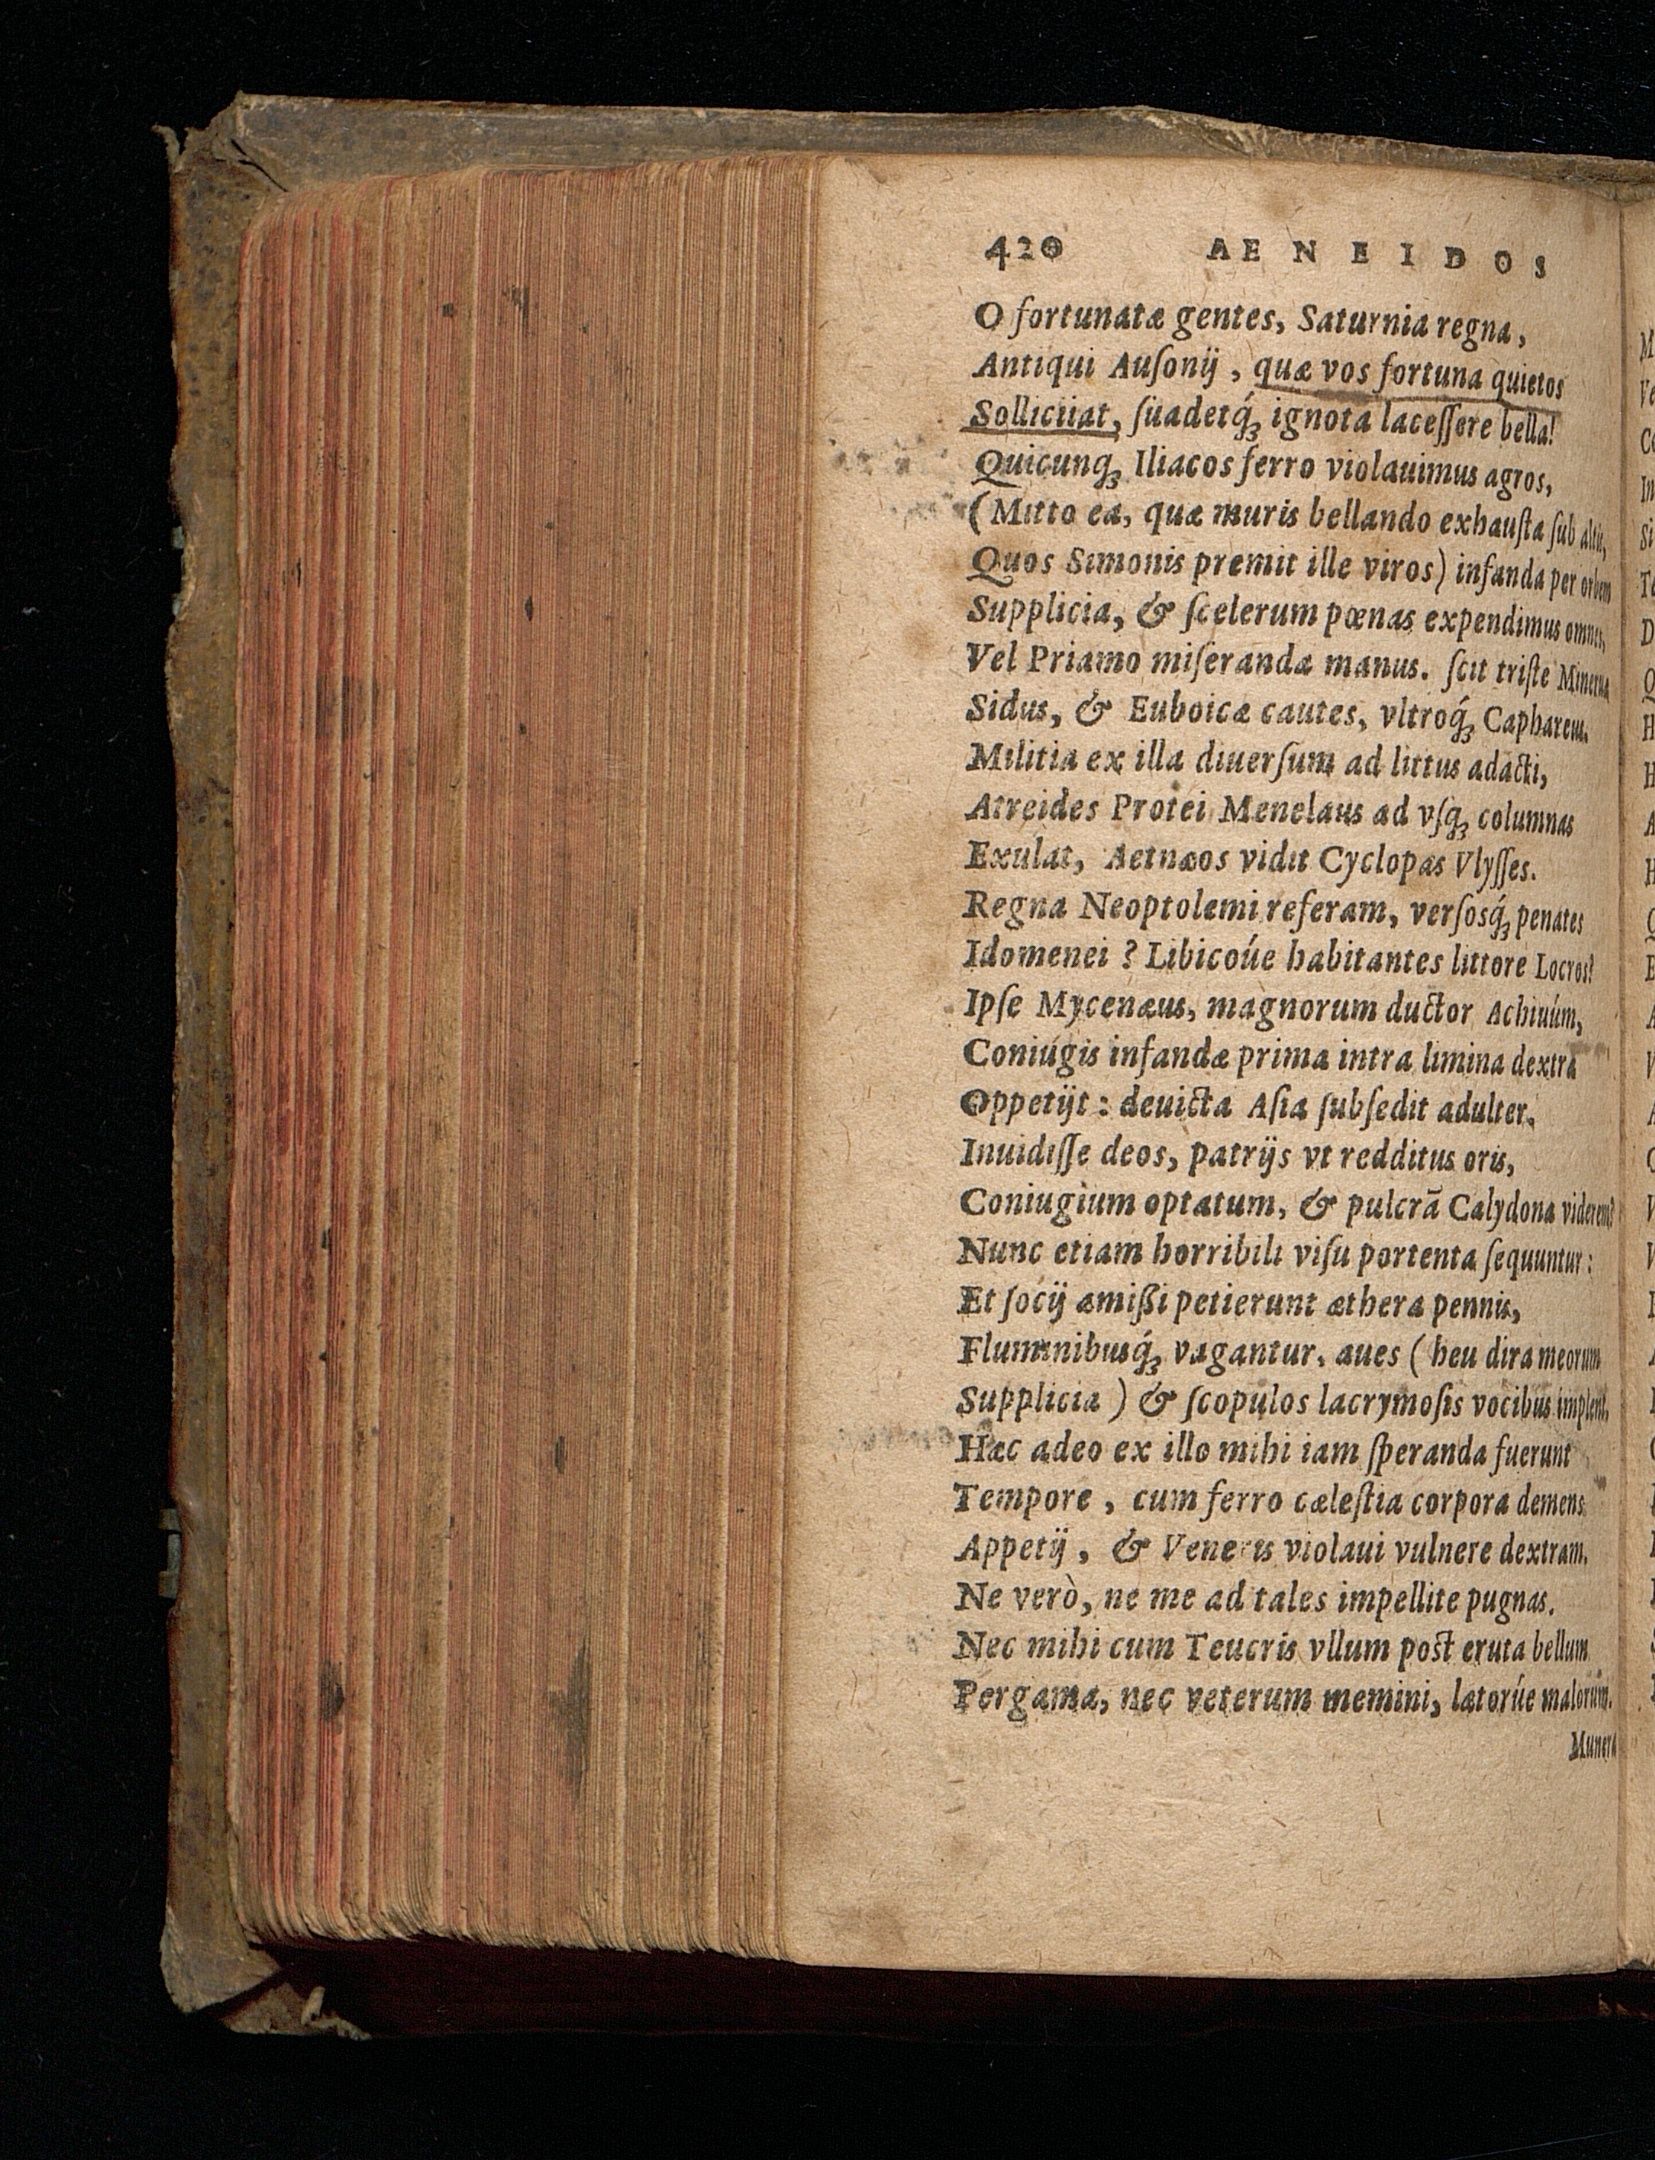 420 AENEIDOS
O fortunatæ gentes, Saturnia regna,
Antiqui Auſonij, quæ vos fortuna quietos
Sollicitat, ſuadetq́ꝫ ignota laceſſere bella!
Quicunqꝫ Iliacos ferro violauimus agros,
(Mitto ea, quæ muris bellando exhauſta ſub altis,
Quos Simonis premit ille viros) infanda per orbem
Supplicia, & ſcelerum pœnas expendimus omnes,
Vel Priamo miſeranda manus. ſcit triſte Mineruæ
Sidus, & Euboicæ cautes, vltroq́ꝫ Caphareus.
Militia ex illa diuerſum ad littus adacti,
Atreides Protei Menelaus ad vſqꝫ columnas
Exulat, Aetnæos vidit Cyclopas Vlyſſes.
Regna Neoptolemi referam, verſosq́ꝫ penates
Idomenei? Libicoúe habitantes littore Locros?
Ipſe Mycenæus, magnorum ductor Achiuúm,
Coniugis infandæ prima intra limina dextra
Oppetijt: deuicta Aſia ſubſedit adulter.
Inuidiſſe deos, patrijs vt redditus oris,
Coniugium optatum, & pulcrā Calydona viderem?
Nunc etiam horribili viſu portenta ſequuntur:
Et ſocij amißi petierunt æthera pennis,
Fluminibusq́ꝫ vagantur. aues (heu dira meorum
Supplicia) & ſcopulos lacrymoſis vocibus implent.
Hæc adeo ex illo mihi iam ſperanda fuerunt
Tempore, cum ferro cæleſtia corpora demens
Appetij, & Veneris violaui vulnere dextram.
Ne verò, ne me ad tales impellite pugnas.
Nec mihi cum Teucris vllum post eruta bellum
Pergama, nec veterum memini, lætorúe malorum.
Munera